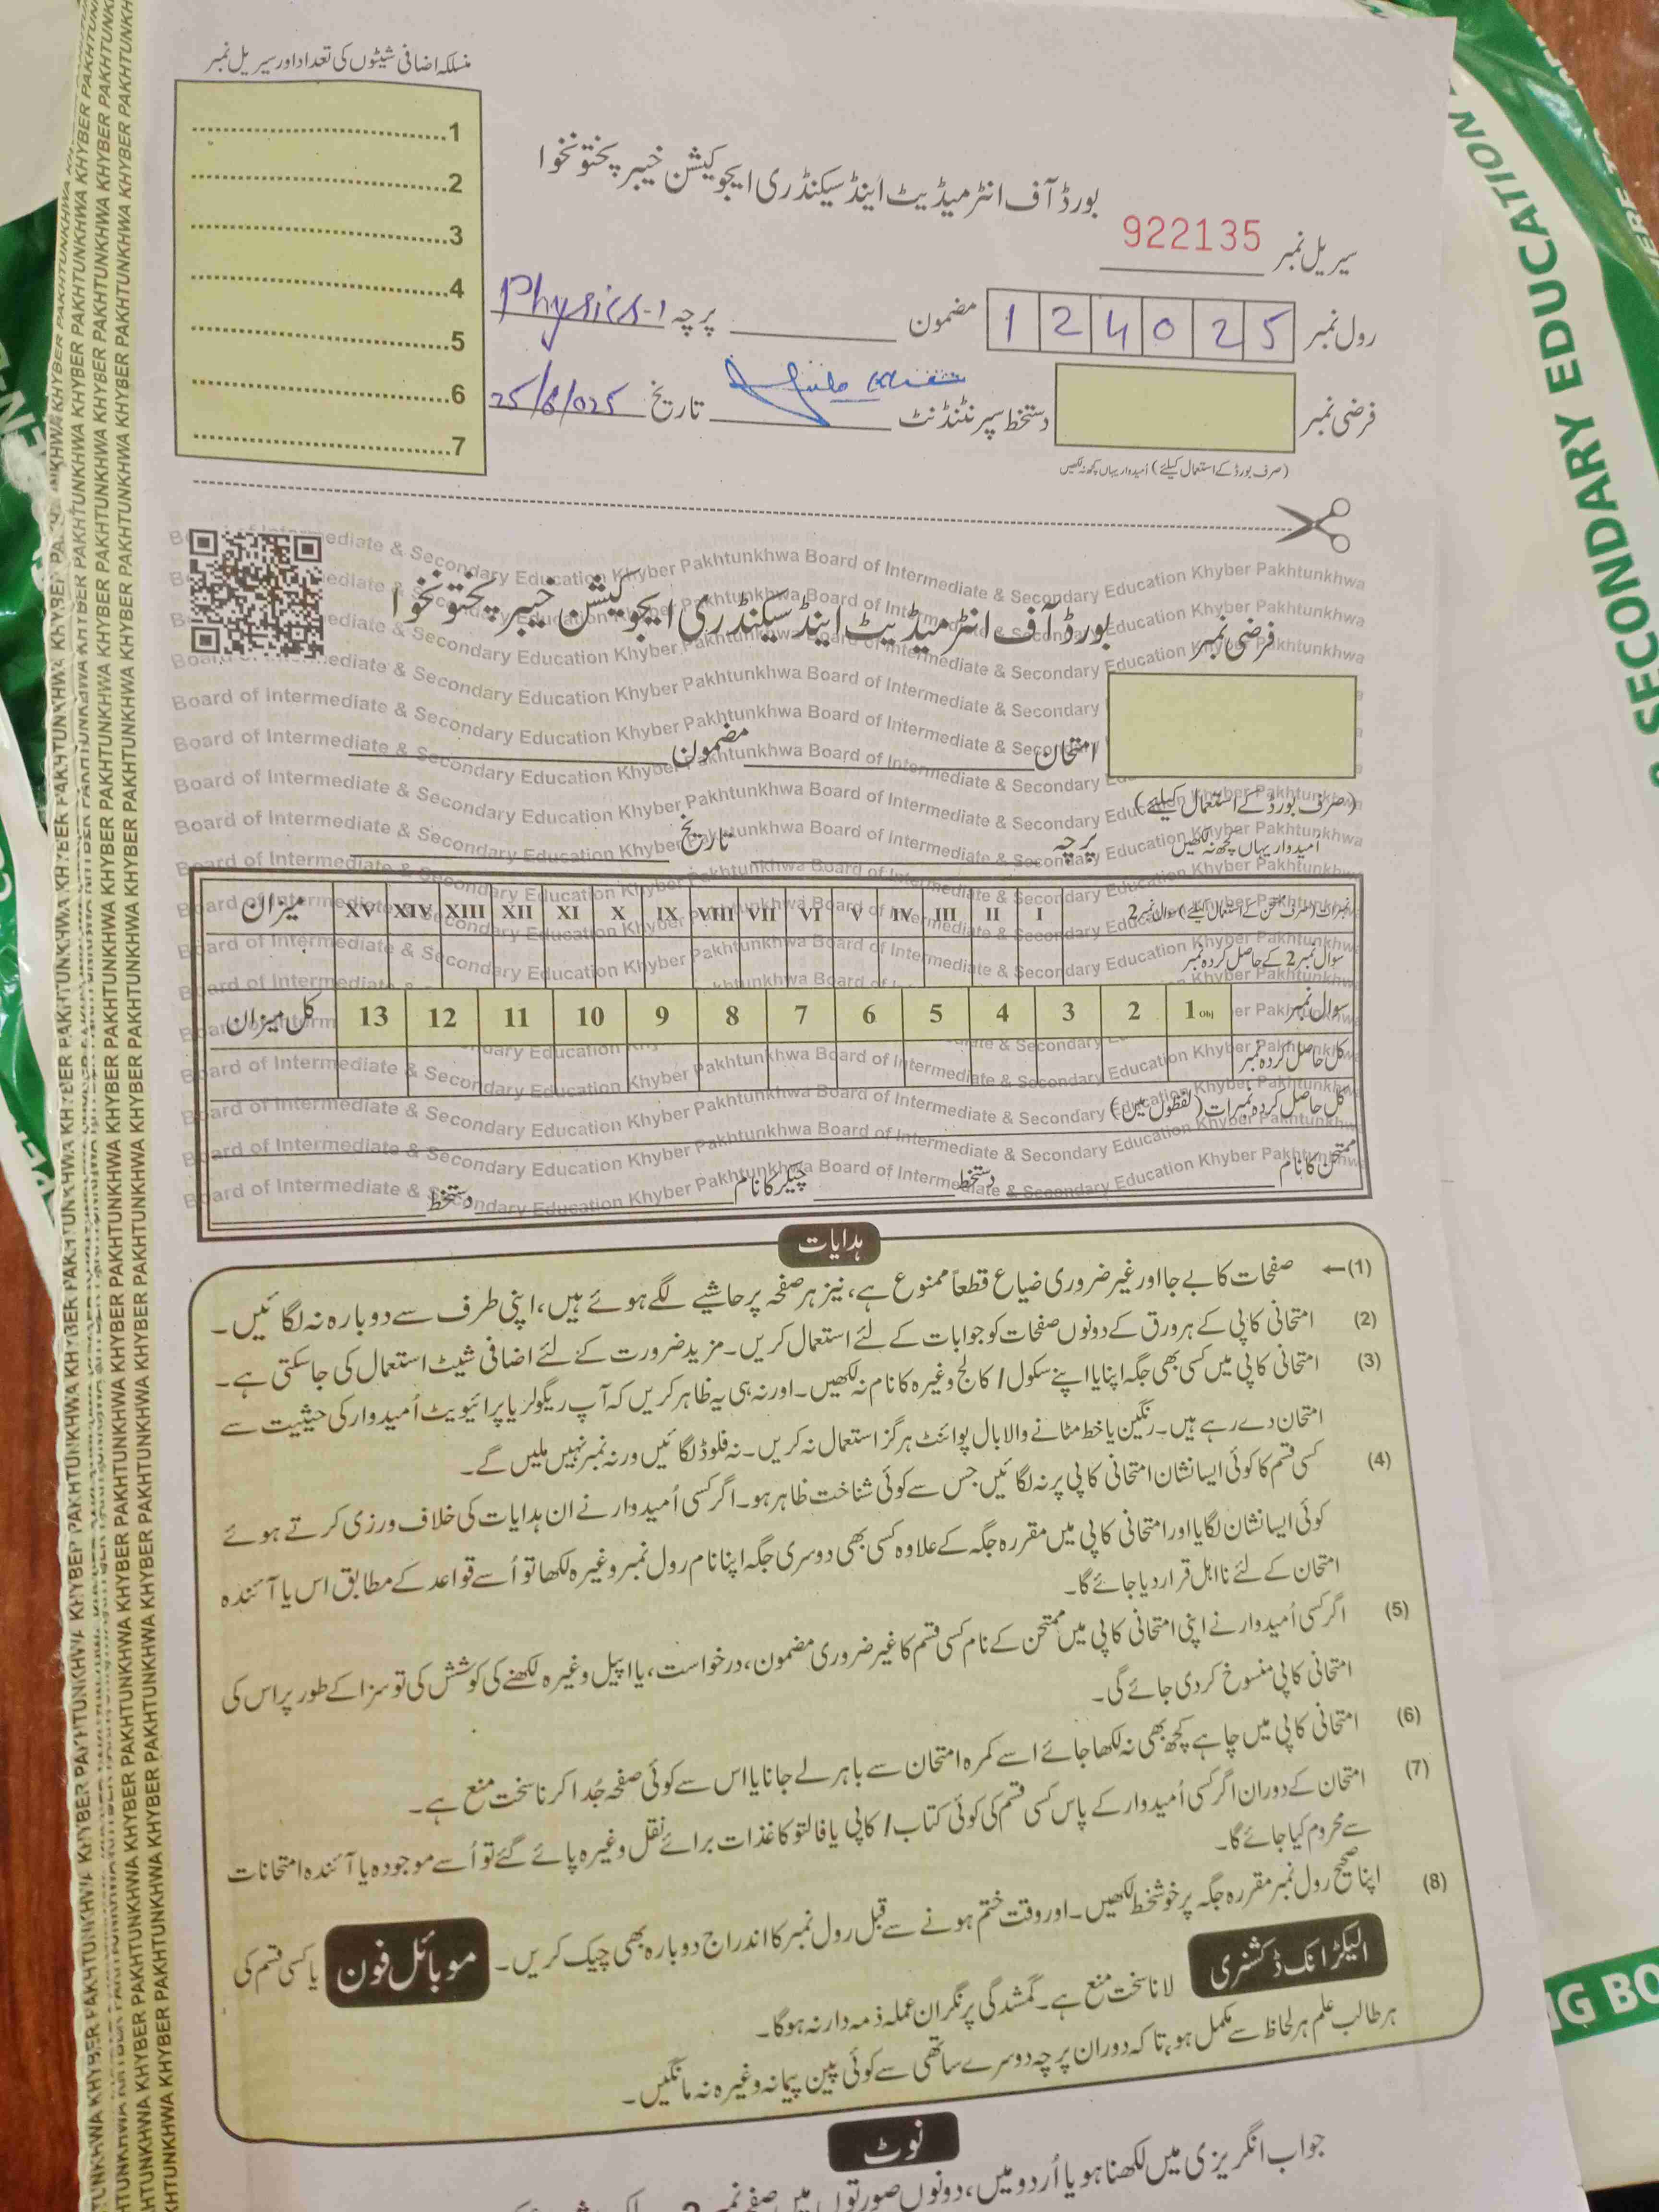 منسلکہ اضافی شیٹوں کی تعداد اور سیریل نمبر
1
2
3
4
5
6
7
بورڈ آف انٹرمیڈیٹ اینڈ سیکنڈری ایجوکیشن خیبر پختونخوا
سیریل نمبر 922135
رول نمبر 1 2 4 0 2 5 مضمون پرچہ Physics-1
فرضی نمبر دستخط سپرنٹنڈنٹ تاریخ 25/6/025
(صرف بورڈ کے استعمال کیلئے) اُمیدوار یہاں کچھ نہ لکھیں
بورڈ آف انٹرمیڈیٹ اینڈ سیکنڈری ایجوکیشن خیبر پختونخوا
فرضی نمبر
امتحان مضمون
(صرف بورڈ کے استعمال کیلئے)
اُمیدوار یہاں کچھ نہ لکھیں
پرچہ تاریخ
نمبرات (صرف ممتحن کے استعمال کیلئے) سوال نمبر 2 I II III IV V VI VII VIII IX X XI XII XIII XIV XV میزان
سوال نمبر 2 کے حاصل کردہ نمبر
سوال نمبر 1 Obj 2 3 4 5 6 7 8 9 10 11 12 13 کل میزان
کل حاصل کردہ نمبر
کل حاصل کردہ نمبرات (لفظوں میں)
ممتحن کا نام دستخط چیکر کا نام دستخط
Board of Intermediate & Secondary Education Khyber Pakhtunkhwa Board of Intermediate & Secondary Education Khyber Pakhtunkhwa
ہدایات
(1) صفحات کا بے جا اور غیر ضروری ضیاع قطعاً ممنوع ہے، نیز ہر صفحہ پر حاشیے لگے ہوئے ہیں، اپنی طرف سے دوبارہ نہ لگائیں۔
(2) امتحانی کاپی کے ہر ورق کے دونوں صفحات کو جوابات کے لئے استعمال کریں۔ مزید ضرورت کے لئے اضافی شیٹ استعمال کی جاسکتی ہے۔
(3) امتحانی کاپی میں کسی بھی جگہ اپنا یا اپنے سکول/ کالج وغیرہ کا نام نہ لکھیں۔ اور نہ ہی یہ ظاہر کریں کہ آپ ریگولر یا پرائیویٹ اُمیدوار کی حیثیت سے
امتحان دے رہے ہیں۔ رنگین یا خط مٹانے والا بال پوائنٹ ہرگز استعمال نہ کریں۔ نہ فلوڈ لگائیں ورنہ نمبر نہیں ملیں گے۔
(4) کسی قسم کا کوئی ایسا نشان امتحانی کاپی پر نہ لگائیں جس سے کوئی شناخت ظاہر ہو۔ اگر کسی اُمیدوار نے ان ہدایات کی خلاف ورزی کرتے ہوئے
کوئی ایسا نشان لگایا اور امتحانی کاپی میں مقررہ جگہ کے علاوہ کسی بھی دوسری جگہ اپنا نام رول نمبر وغیرہ لکھا تو اُسے قواعد کے مطابق اس یا آئندہ
امتحان کے لئے نااہل قرار دیا جائے گا۔
(5) اگر کسی اُمیدوار نے اپنی امتحانی کاپی میں ممتحن کے نام کسی قسم کا غیر ضروری مضمون، درخواست، یا اپیل وغیرہ لکھنے کی کوشش کی تو سزا کے طور پر اس کی
امتحانی کاپی منسوخ کردی جائے گی۔
(6) امتحانی کاپی میں چاہے کچھ بھی نہ لکھا جائے اسے کمرہ امتحان سے باہر لے جانا یا اس سے کوئی صفحہ جُدا کرنا سخت منع ہے۔
(7) امتحان کے دوران اگر کسی اُمیدوار کے پاس کسی قسم کی کوئی کتاب/ کاپی یا فالتو کاغذات برائے نقل وغیرہ پائے گئے تو اُسے موجودہ یا آئندہ امتحانات
سے محروم کیا جائے گا۔
(8) اپنا صحیح رول نمبر مقررہ جگہ پر خوشخط لکھیں۔ اور وقت ختم ہونے سے قبل رول نمبر کا اندراج دوبارہ بھی چیک کریں۔ موبائل فون یا کسی قسم کی
الیکٹرانک ڈکشنری لانا سخت منع ہے۔ گمشدگی پر نگران عملہ ذمہ دار نہ ہوگا۔
ہر طالب علم ہر لحاظ سے مکمل ہو، تاکہ دوران پرچہ دوسرے ساتھی سے کوئی پین پیمانہ وغیرہ نہ مانگیں۔
نوٹ
جواب انگریزی میں لکھنا ہو یا اُردو میں، دونوں صورتوں میں صفحہ نمبر
KHYBER PAKHTUNKHWA
SECONDARY EDUCATION